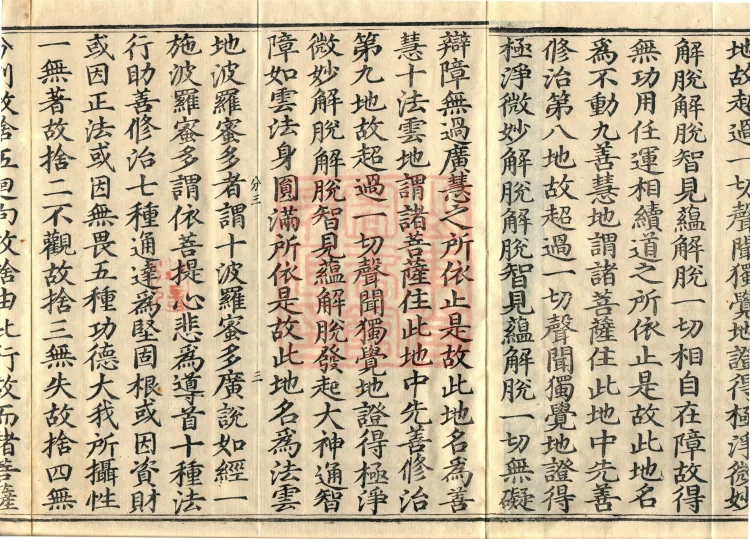 地故超過一切聲聞獨覺地證得極淨微妙
解脫解脫智見蘊解脫一切相自在障故得
無功用任運相續道之所依止是故此地名
爲不動九善慧地謂諸菩薩住此地中先善
修治第八地故超過一切聲聞獨覺地證得
極淨微妙解脫解脫智見蘊解脫一切無礙
辯障無過廣慧之所依止是故此地名爲善
慧十法雲地謂諸菩薩住此地中先善修治
第九地故超過一切聲聞獨覺地證得極淨
微妙解脫智見蘊解脫發起大神通智
障如雲法身圓滿所依是故此地名爲法雲
地波羅蜜多者謂十波羅蜜多廣說如經一
施波羅蜜多謂依菩提心悲爲導首十種法
行助善修治七種通達爲堅固根或因資財
或因正法或因無畏五種功德大我所攝性
一無著故捨二不觀故捨三無失故捨四無
分別故捨五迴向故捨由此行故而諸菩薩
分三
三